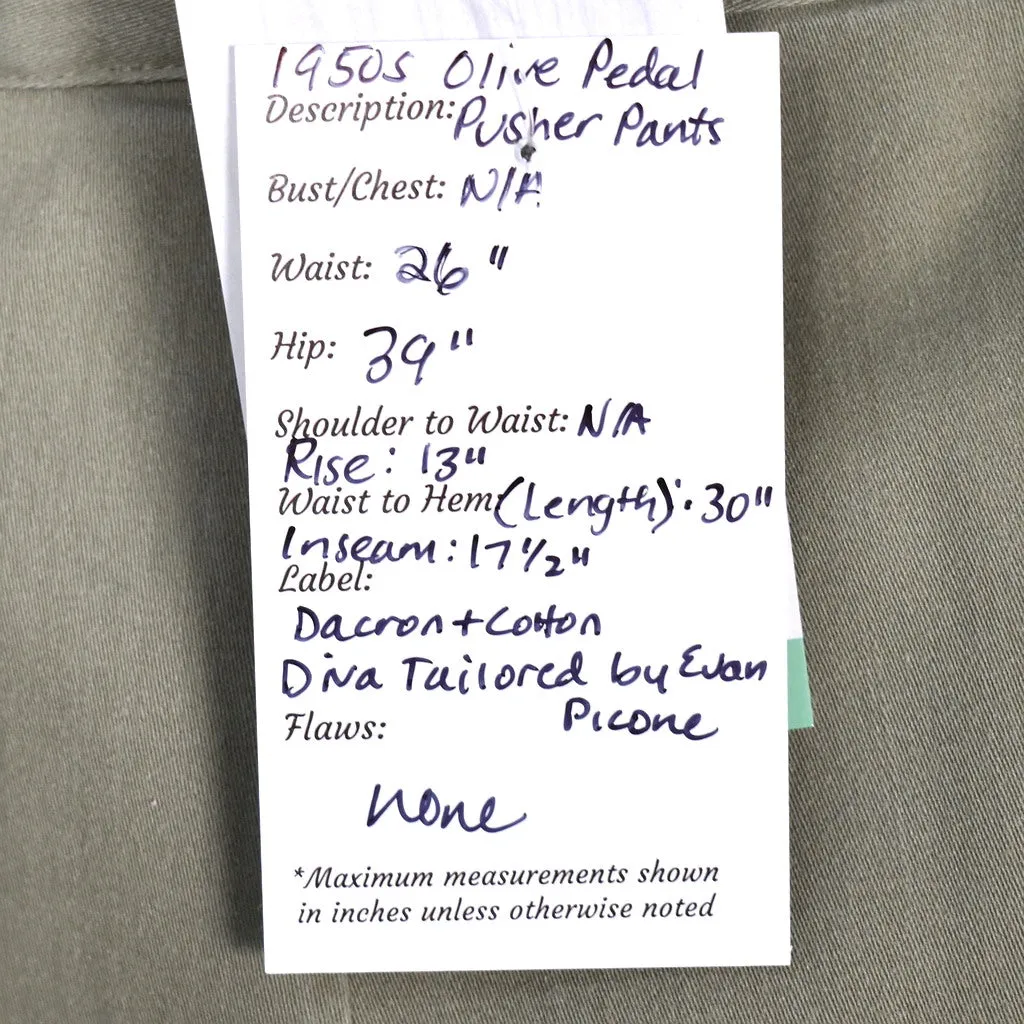 1950s Olive Pedal
Description: Pusher Pants
Bust/Chest: N/A
Waist: 26"
Hip: 39"
Shoulder to Waist: N/A
Rise: 13"
Waist to Hem (Length): 30"
Inseam: 17 1/2"
Label:
Dacron + Cotton
Diva Tailored by Evan
Picone
Flaws:
none
*Maximum measurements shown
in inches unless otherwise noted